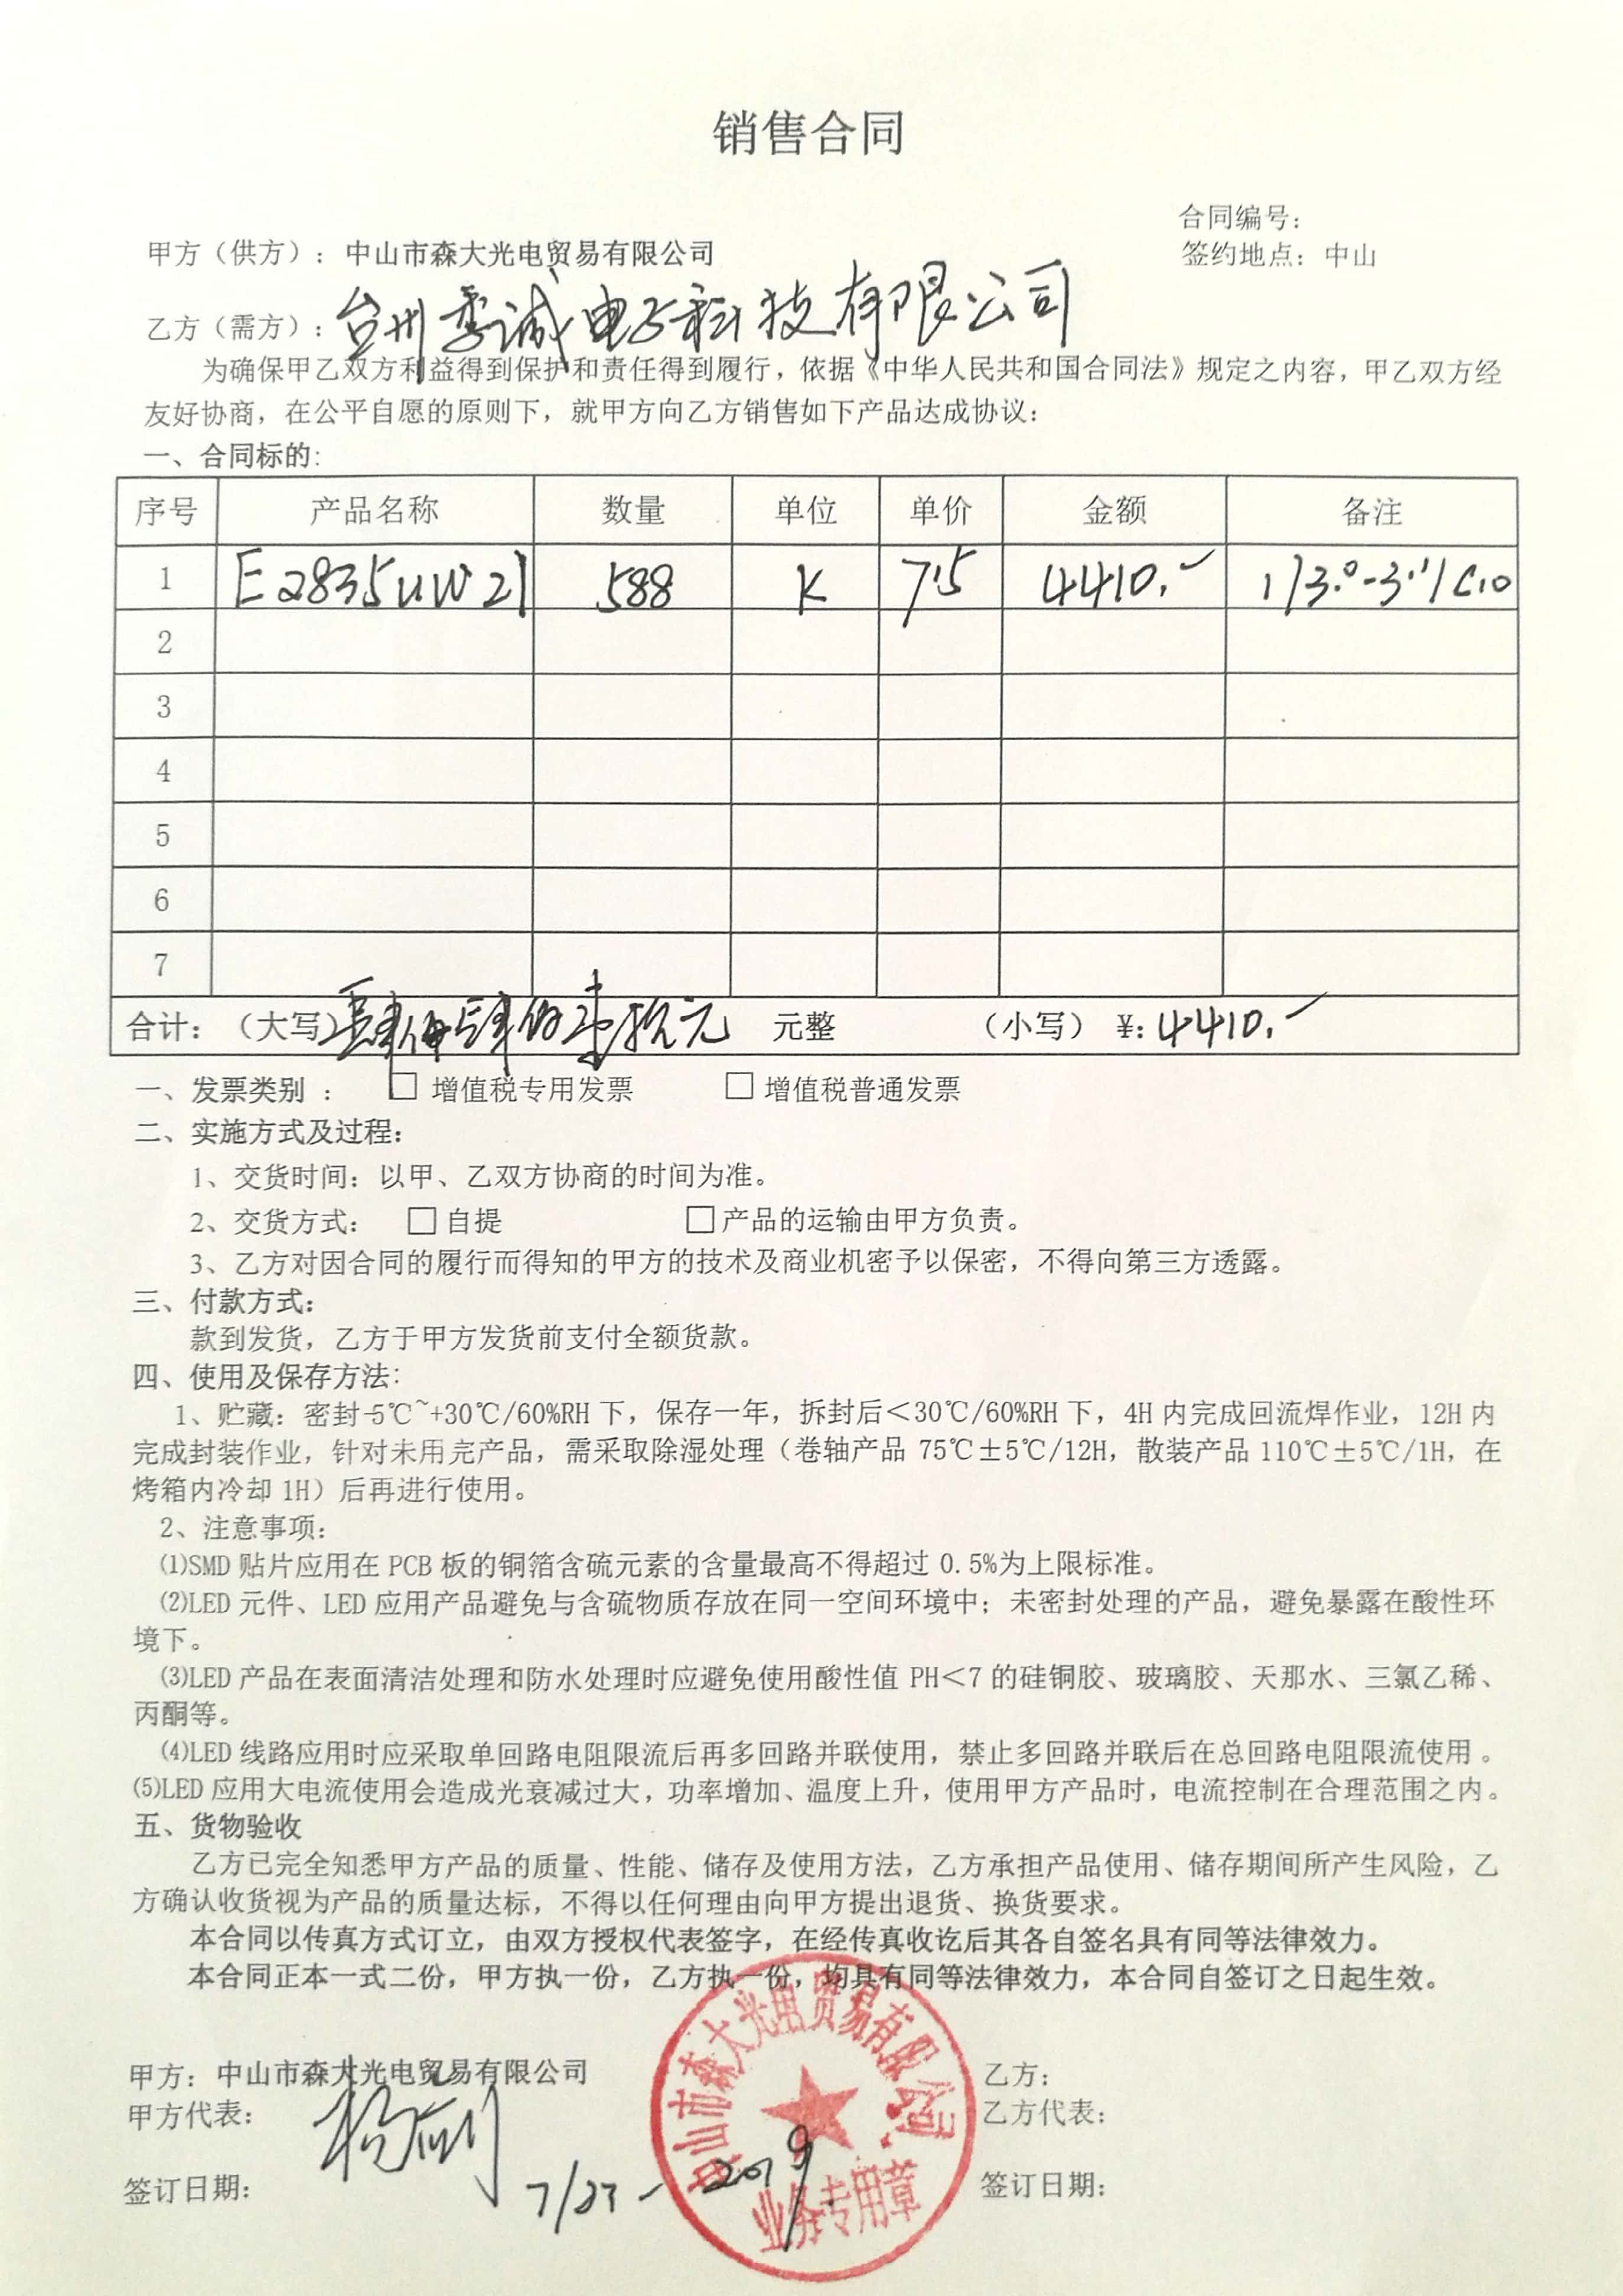 销售合同
合同编号：
甲方（供方）：中山市森大光电贸易有限公司
签约地点：中山
乙方（需方）：台州 诚电子科技有限公司
为确保甲乙双方利益得到保护和责任得到履行，依据《中华人民共和国合同法》规定之内容，甲乙双方经
友好协商，在公平自愿的原则下，就甲方向乙方销售如下产品达成协议：
一、合同标的：
序号 产品名称 数量 单位 单价 金额 备注
1 E2835UW21 588 K 7.5 4410.- 1/3.0-3.1/C10
2
3
4
5
6
7
合计：（大写）肆仟肆佰壹拾元 元整 （小写）¥：4410.-
一、发票类别： □ 增值税专用发票 □ 增值税普通发票
二、实施方式及过程：
1、交货时间：以甲、乙双方协商的时间为准。
2、交货方式： □ 自提 □产品的运输由甲方负责。
3、乙方对因合同的履行而得知的甲方的技术及商业机密予以保密，不得向第三方透露。
三、付款方式：
款到发货，乙方于甲方发货前支付全额货款。
四、使用及保存方法：
1、贮藏：密封-5℃~+30℃/60%RH下，保存一年，拆封后＜30℃/60%RH下，4H内完成回流焊作业，12H内
完成封装作业，针对未用完产品，需采取除湿处理（卷轴产品 75℃±5℃/12H，散装产品 110℃±5℃/1H，在
烤箱内冷却 1H）后再进行使用。
2、注意事项：
⑴SMD 贴片应用在 PCB 板的铜箔含硫元素的含量最高不得超过 0.5%为上限标准。
⑵LED 元件、LED 应用产品避免与含硫物质存放在同一空间环境中；未密封处理的产品，避免暴露在酸性环
境下。
⑶LED 产品在表面清洁处理和防水处理时应避免使用酸性值 PH＜7 的硅铜胶、玻璃胶、天那水、三氯乙稀、
丙酮等。
⑷LED 线路应用时应采取单回路电阻限流后再多回路并联使用，禁止多回路并联后在总回路电阻限流使用。
⑸LED 应用大电流使用会造成光衰减过大，功率增加、温度上升，使用甲方产品时，电流控制在合理范围之内。
五、货物验收
乙方已完全知悉甲方产品的质量、性能、储存及使用方法，乙方承担产品使用、储存期间所产生风险，乙
方确认收货视为产品的质量达标，不得以任何理由向甲方提出退货、换货要求。
本合同以传真方式订立，由双方授权代表签字，在经传真收讫后其各自签名具有同等法律效力。
本合同正本一式二份，甲方执一份，乙方执一份，均具有同等法律效力，本合同自签订之日起生效。
甲方：中山市森大光电贸易有限公司
乙方：
甲方代表：
乙方代表：
签订日期：7/27-2019
签订日期：
中山市森大光电贸易有限公司
业务专用章